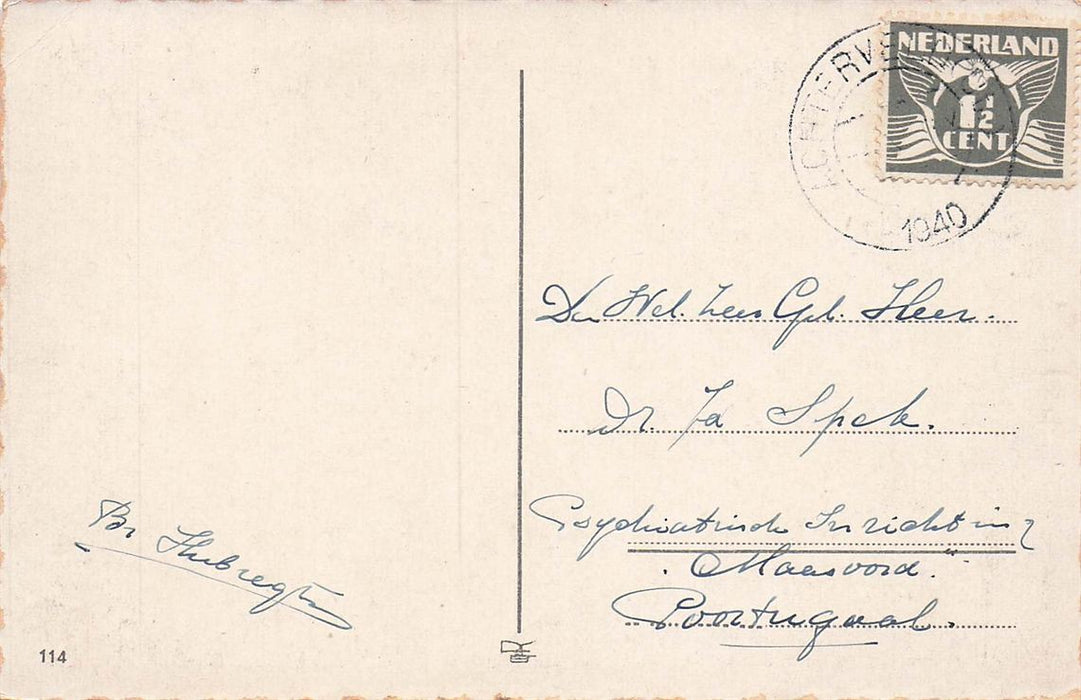 NEDERLAND
1½
CENT
ACHTERVE
1940
Den Wel. Zeer Gel. Heer.
Dr. Ja Spek.
Psychiatrische Inrichting
"Maasoord."
Poortugaal.
Br Hubregts
114